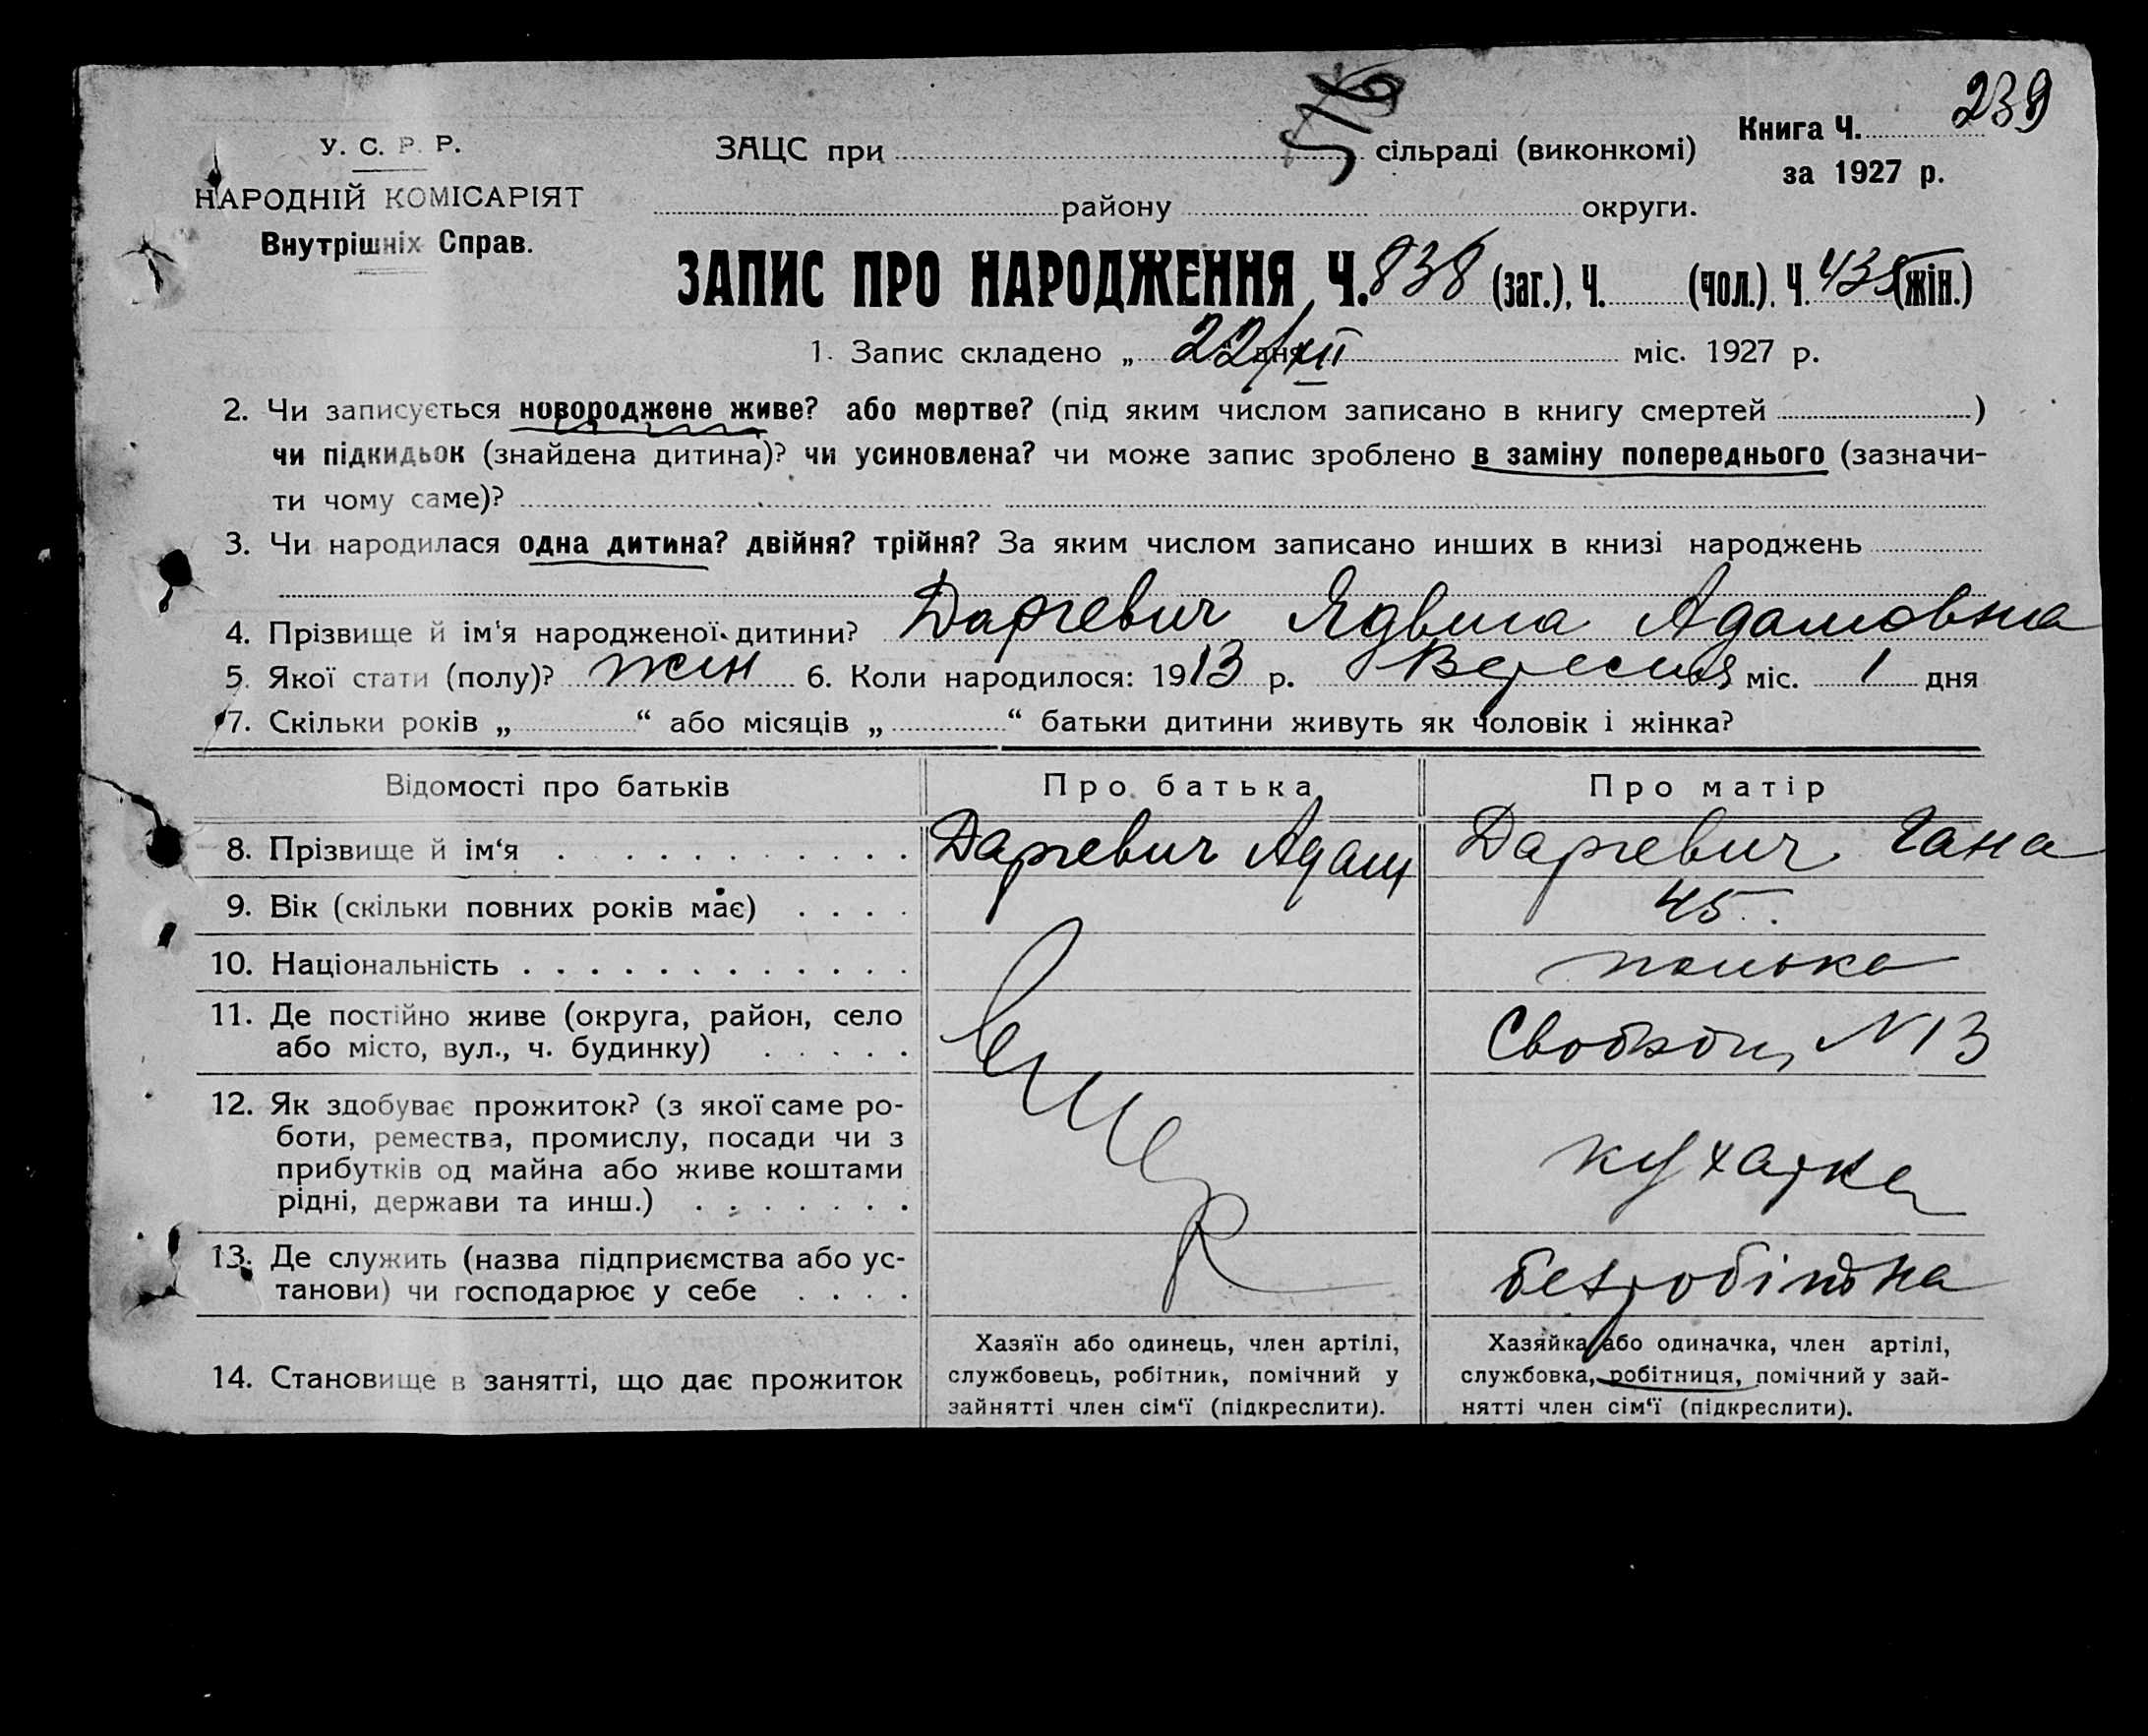 239
516
У. С. Р. Р.
ЗАЦС при сільраді (виконкомі)
Книга Ч.
за 1927 р.
НАРОДНІЙ КОМІСАРІЯТ
району округи.
Внутрішніх Справ.
ЗАПИС ПРО НАРОДЖЕННЯ Ч. 838 (заг.), Ч. (чол.), Ч. 435 (жін.)
1. Запис складено „ 22/XII дня міс. 1927 р.
2. Чи записується новороджене живе? або мертве? (під яким числом записано в книгу смертей )
чи підкидьок (знайдена дитина)? чи усиновлена? чи може запис зроблено в заміну попереднього (зазначи-
ти чому саме)?
3. Чи народилася одна дитина? двійня? трійня? За яким числом записано инших в книзі народжень
4. Прізвище й ім'я народженої дитини? Даргевич Ядвига Адамовна
5. Якої стати (полу)? жін 6. Коли народилося: 1913 р. Вересня міс. 1 дня
7. Скільки років „ “ або місяців „ “ батьки дитини живуть як чоловік і жінка?
Відомості про батьків Про батька Про матір
8. Прізвище й ім‘я Даргевич Адам Даргевич Гана
9. Вік (скільки повних років має) 45
10. Національність полька
11. Де постійно живе (округа, район, село
або місто, вул., ч. будинку) N 13
12. Як здобуває прожиток? (з якої саме ро-
боти, ремества, промислу, посади чи з
прибутків од майна або живе коштами
рідні, держави та инш.) кухарка
13. Де служить (назва підприємства або ус-
танови) чи господарює у себе безробітна
14. Становище в занятті, що дає прожиток
Хазяїн або одинець, член артілі,
службовець, робітник, помічний у
зайнятті член сім‘ї (підкреслити).
Хазяйка або одиначка, член артілі,
службовка, робітниця, помічний у зай-
нятті член сім‘ї (підкреслити).